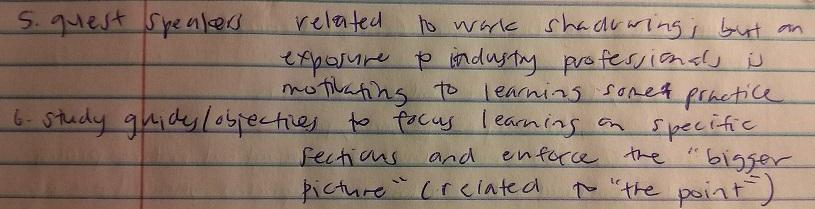 5. guest speakers related to work shadowing; but an
exposure to industry professionals is
motivating to learning some practice
6. study guides/objectives to focus learning on specific
sections and enforce the "bigger
picture" (related to "the point")